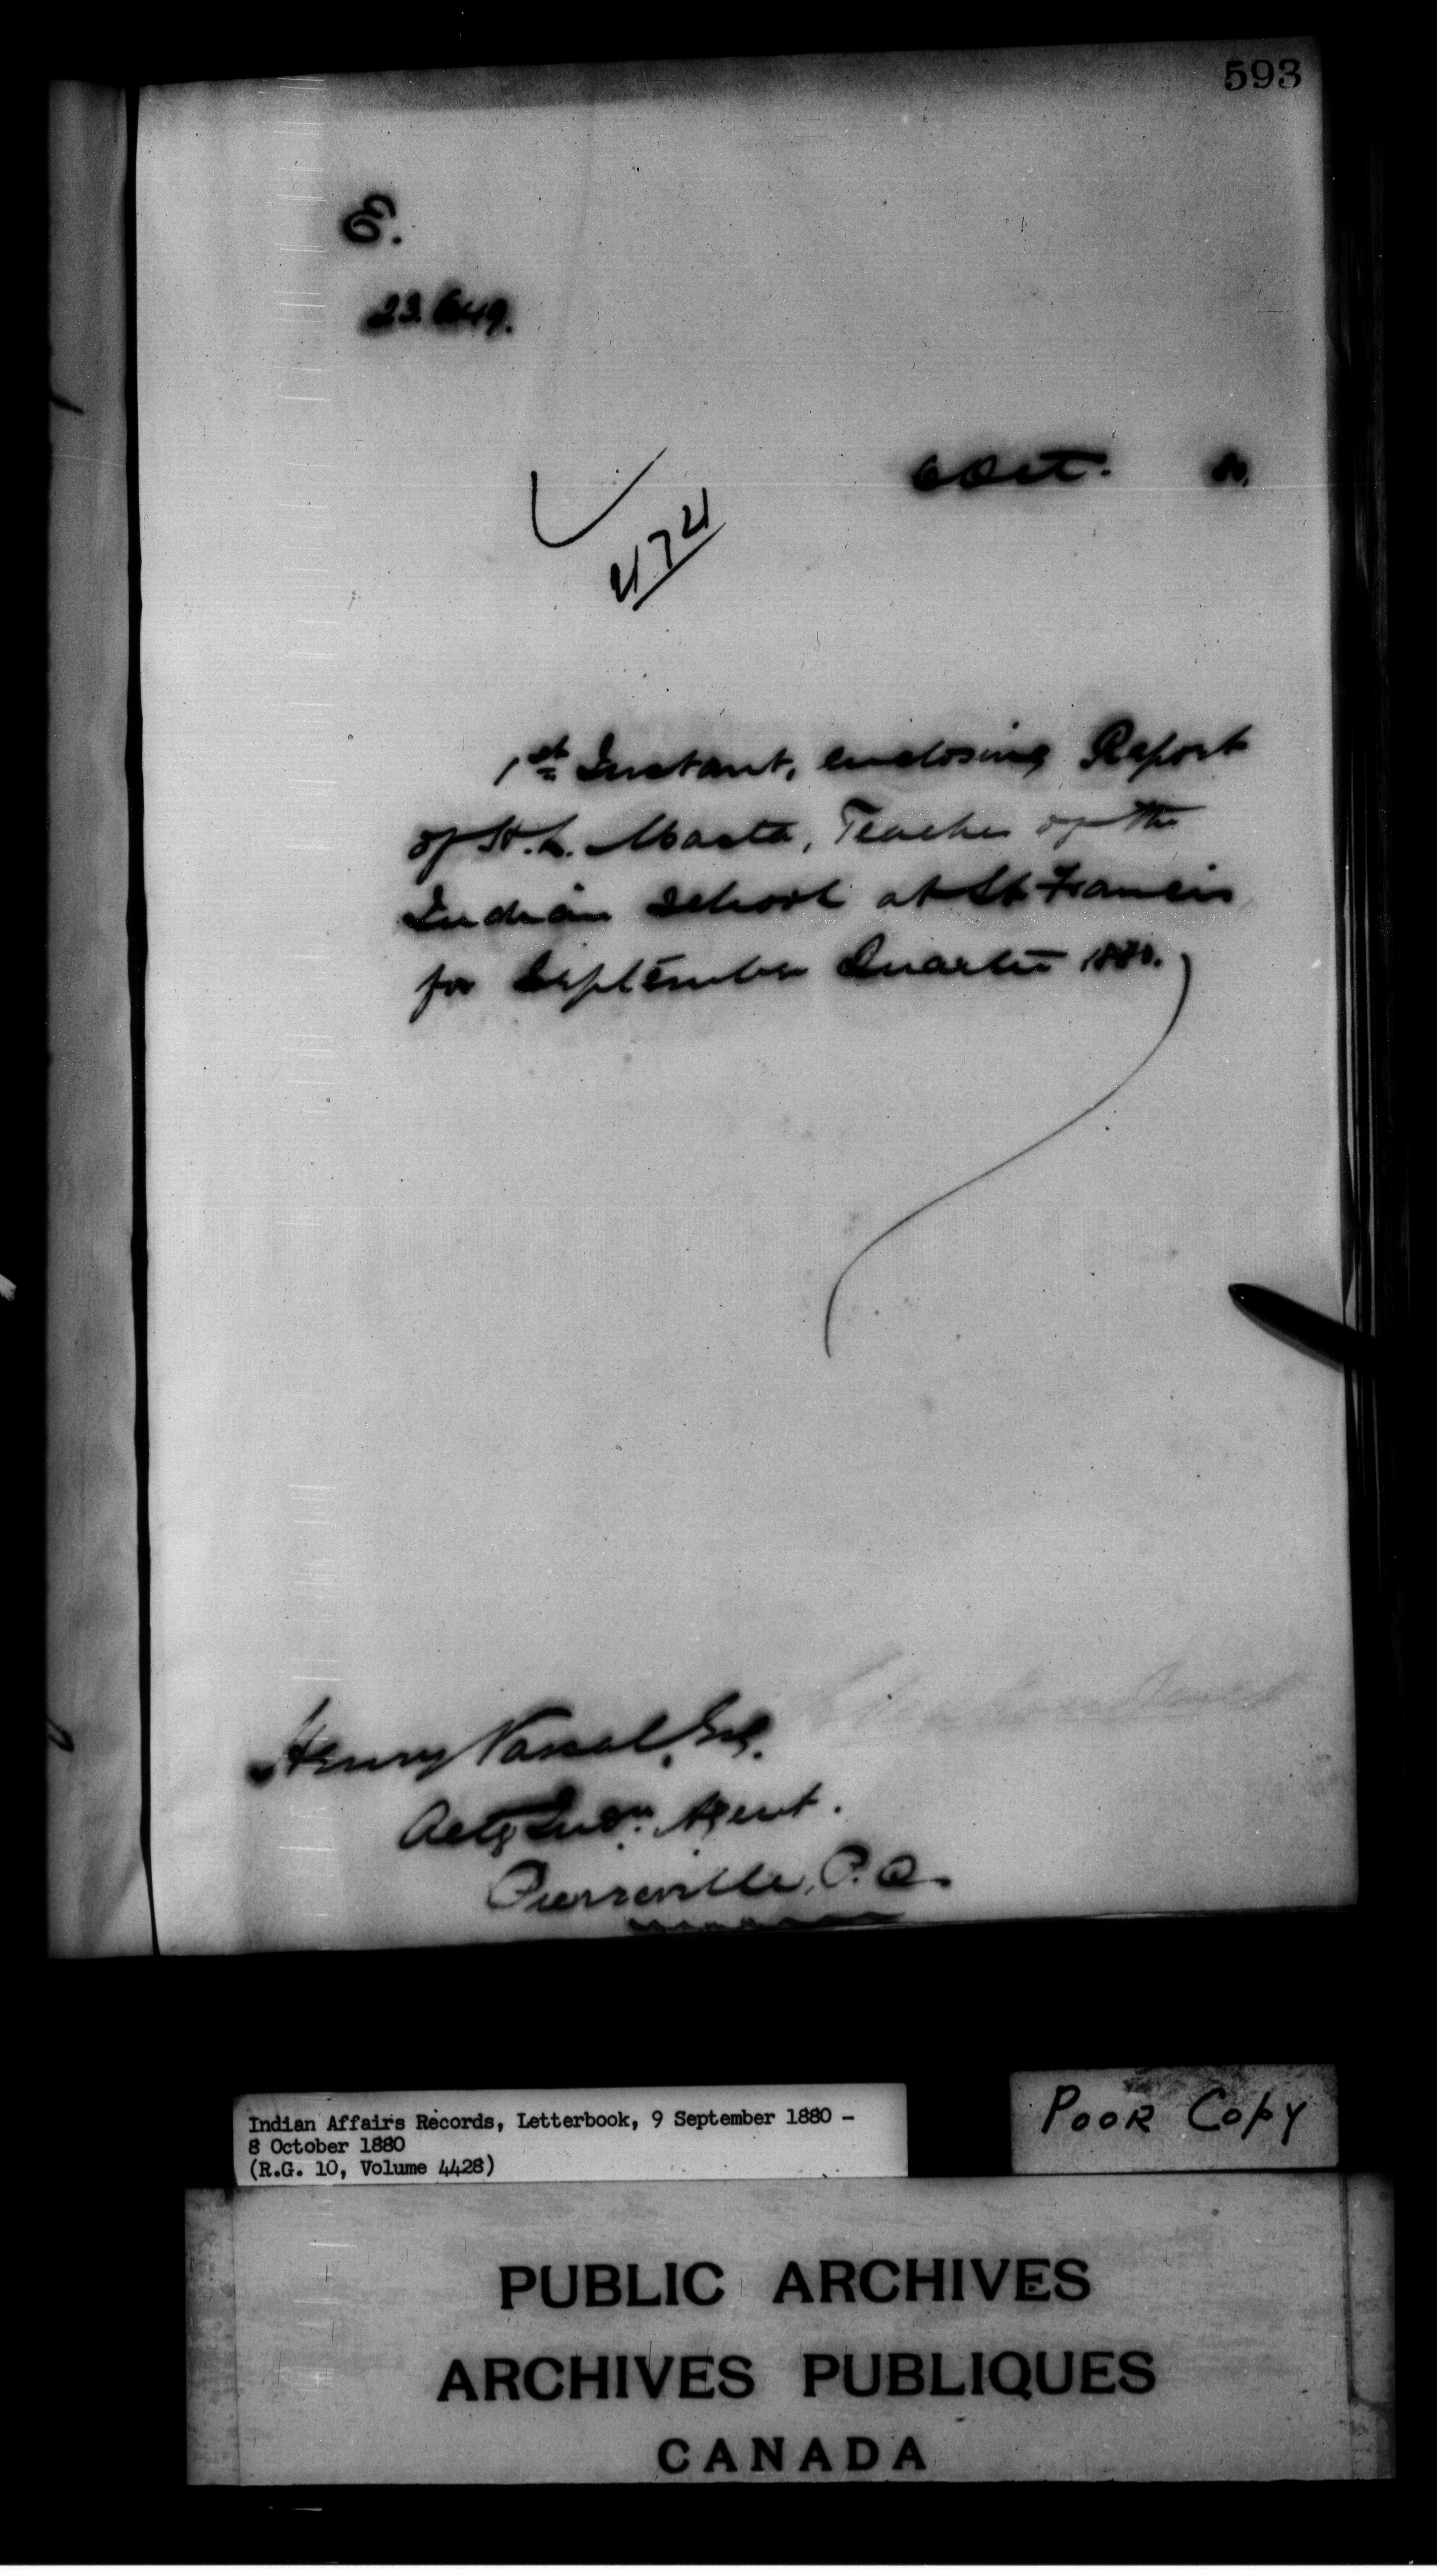 593
E.
23.649.
6 Oct. 80.
474
1st Instant, enclosing Report
of H. L. Masta, Teacher of the
Indian School at St. Francis
for September Quarter 1880.
Henry Vassal, Esq.
Actg Indn. Agent.
Pierreville, P.Q.
Indian Affairs Records, Letterbook, 9 September 1880 -
8 October 1880
(R.G. 10, Volume 4428)
POOR COPY
PUBLIC ARCHIVES
ARCHIVES PUBLIQUES
CANADA